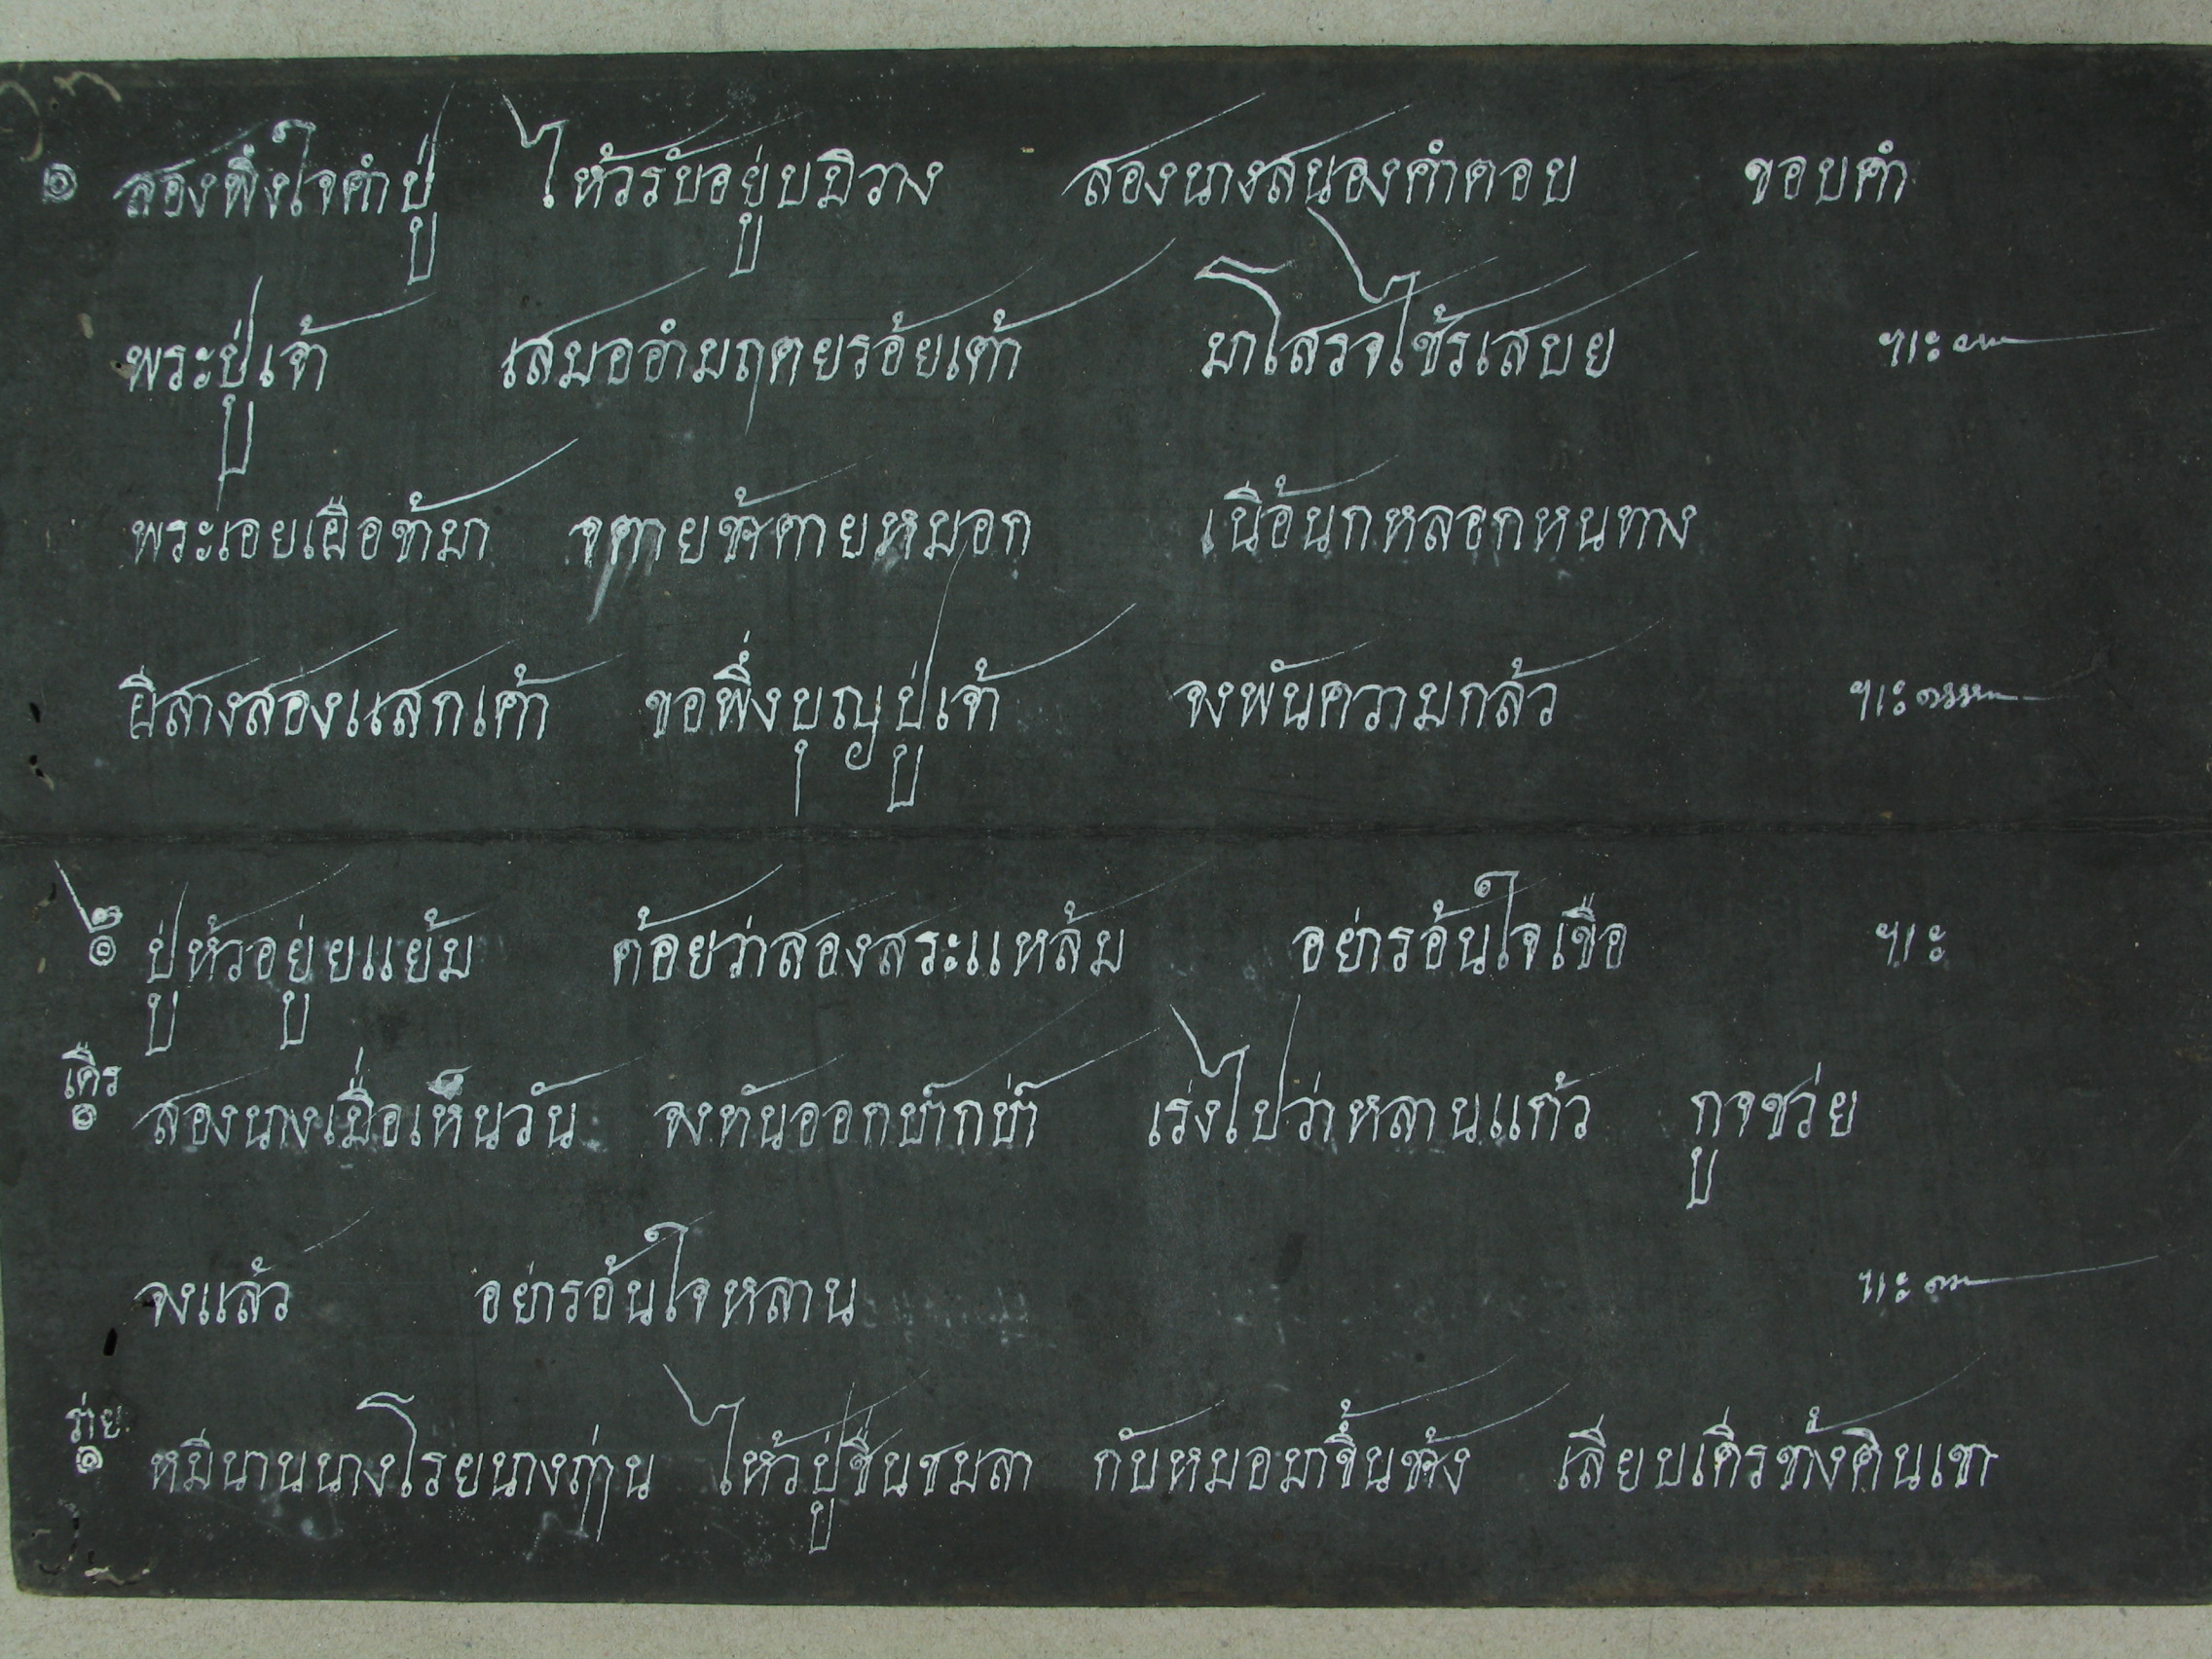 ๏ สองพึ่งใจคำปู่ ไหว้รับอยู่บมิวาง สองนางสนองคำตอบ ขอบคำ
พระปู่เจ้า เสมออำมฤตยร้อยเต้า มาโสรจไซ้รเสบย ฯะ
พระเอยเผือข้ามา จตายช้าตายหมอก เนื้อนกหลอกหนทาง
ผีสางสองแสกเค้า ขอพึ่งบุญปู่เจ้า จงพ้นความกล้ว ฯะ
๒ ๏ ปู่หัวอยู่ยแย้ม ค้อยว่าสองสระแหล้ม อย่าร้อนใจเขือ ฯะ
เคิร ๏ สองนางเมื่อเห็นวัน จงหันออกบ่ากบ่า เร่งไปว่าหลานแก้ว กูจชว่ย
จงแล้ว อย่าร้อนใจหลาน ฯะ
ร่าย ๏ หมีนานนางโรยนางฦๅน ไหว้ปู่ชื่นชมลา กับหมอมาขึ้นช้าง เลียบเคิรข้างคีนเขา